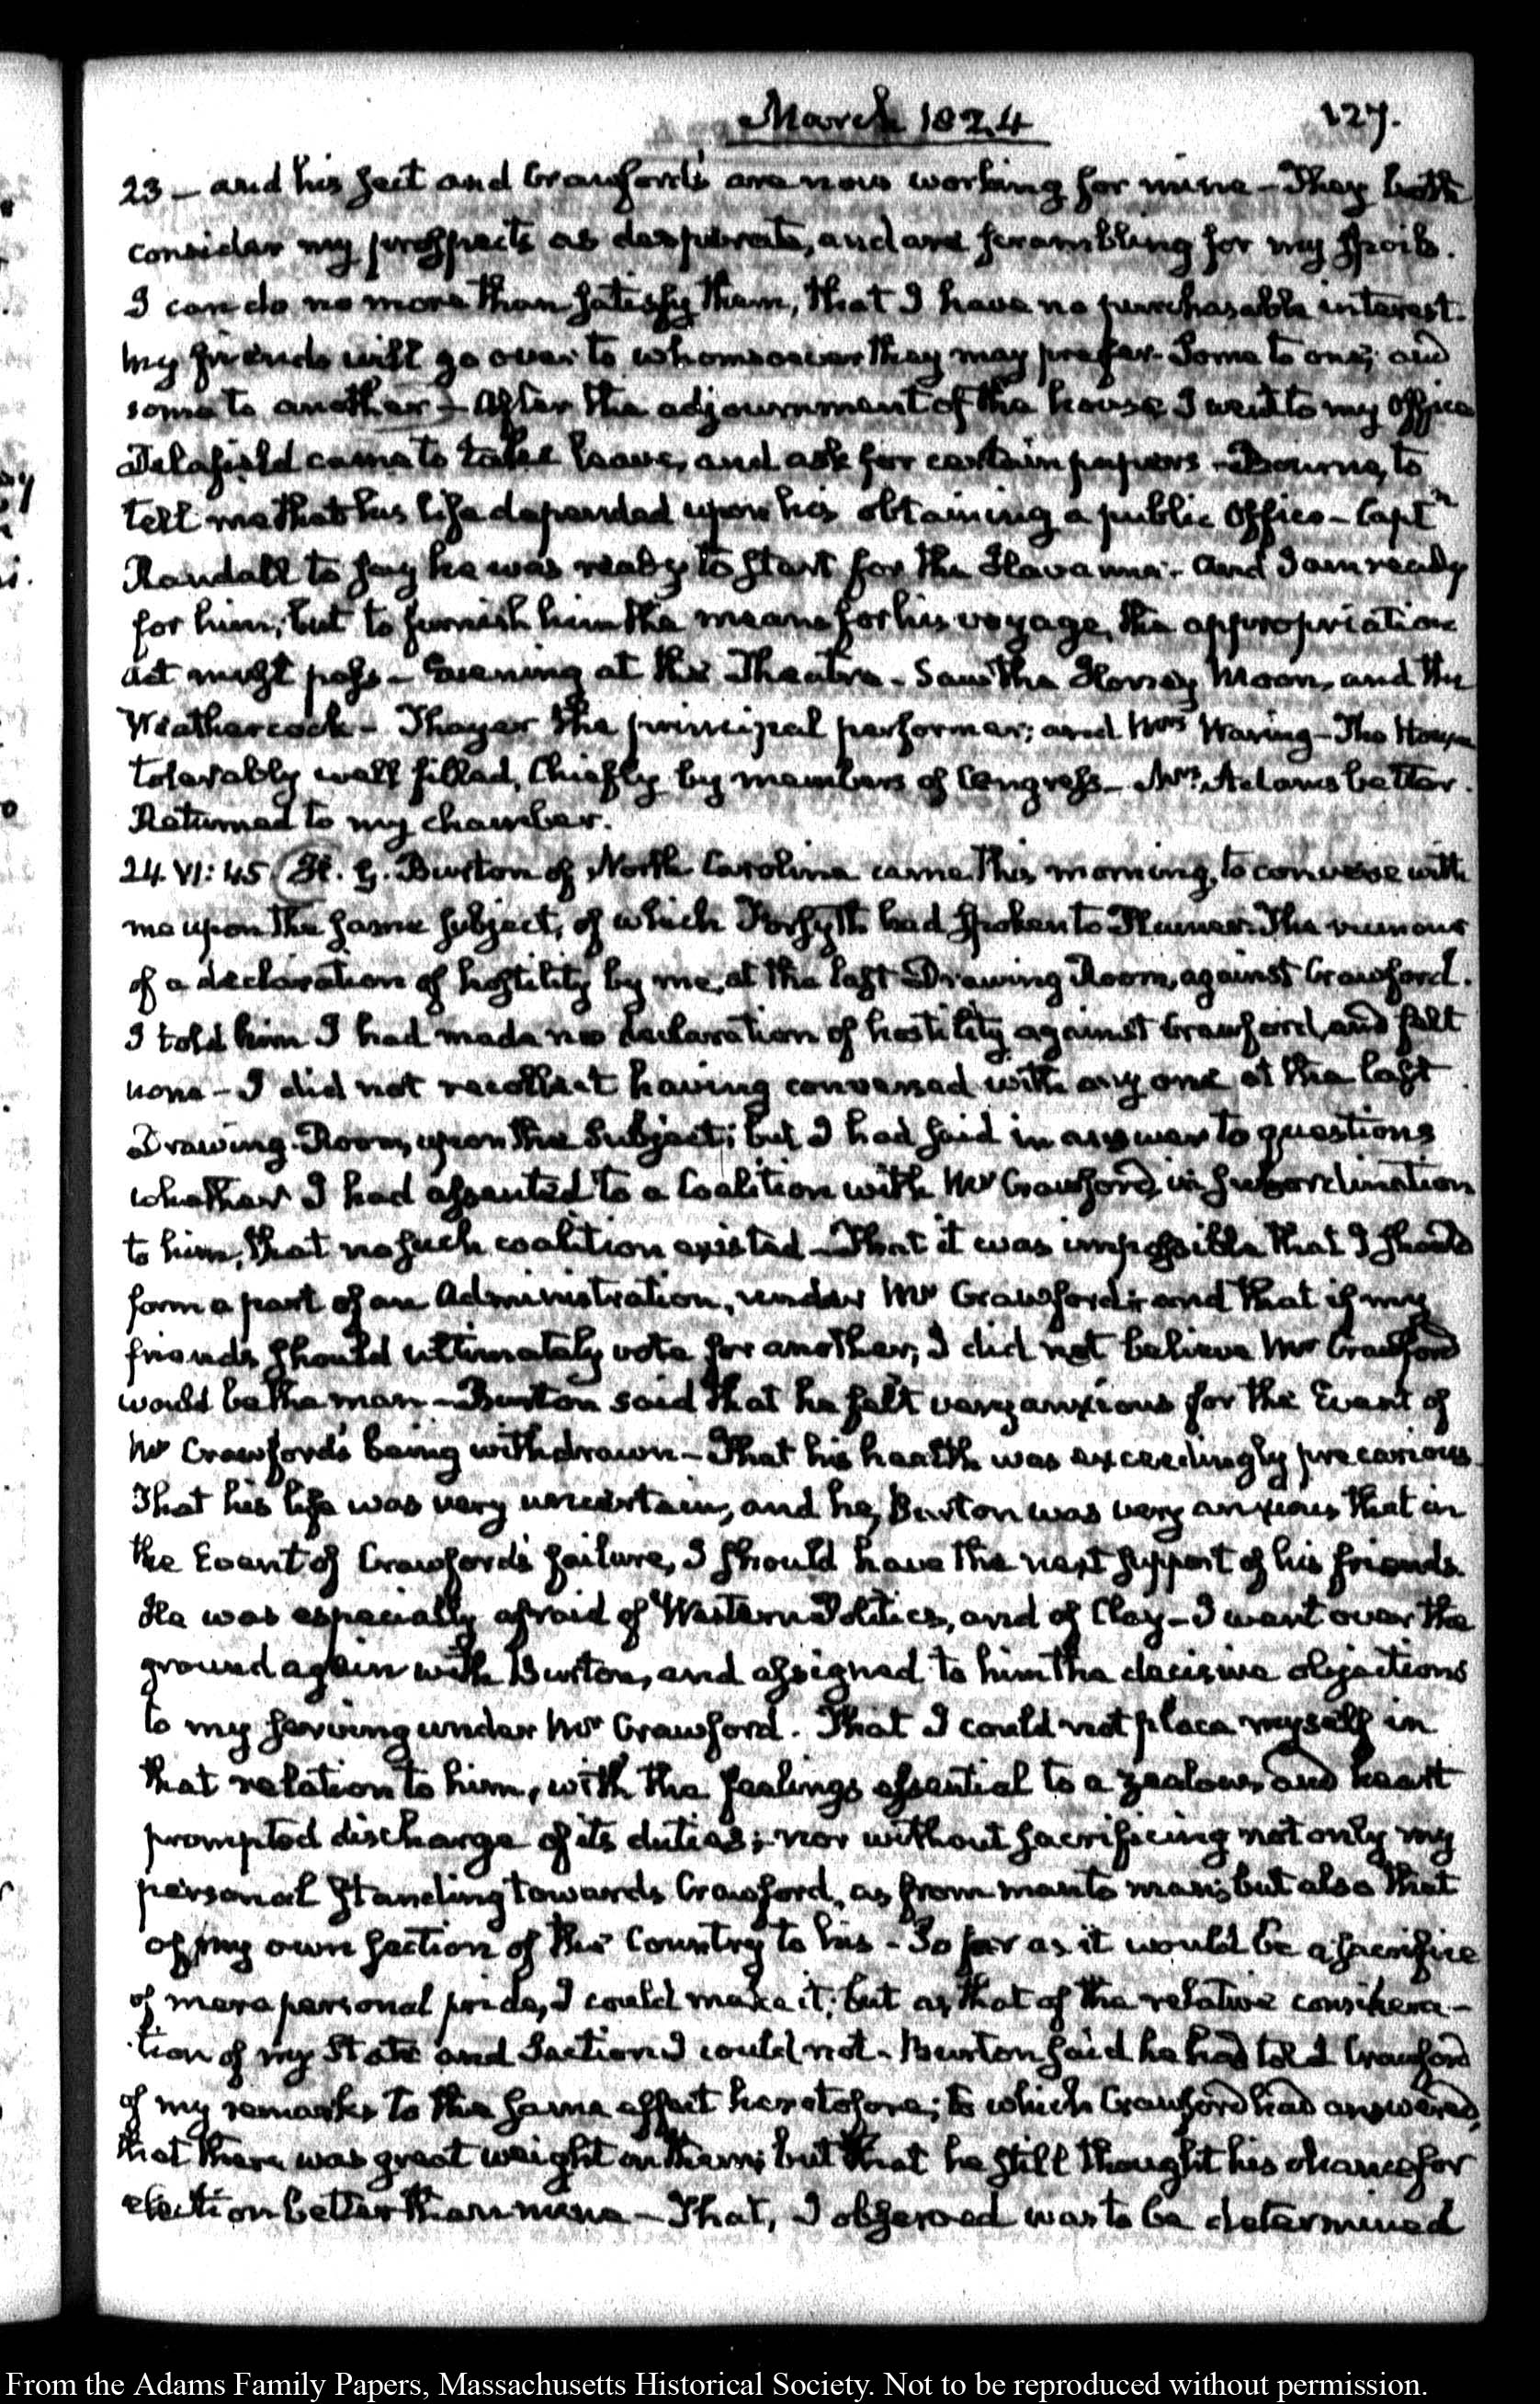 March 1824
127.
23 – and his sect and Crawford's are now working for mine – They both
consider my prospects as desperate, and are scrambling for my spoils.
I can do no more than satisfy them, that I have no purchasable interest.
My friends will go over to whomsoever they may prefer. Some to one; and
some to another – After the adjournment of the house, I went to my Office
Delafield came to take leave, and ask for certain papers – Bourne, to
tell me that his life depended upon his obtaining a public Office – Captn
Randall to say he was ready to start for the Havanna – And I am ready
for him; but to furnish him the means for his voyage, the appropriation
act must pass – Evening at the Theatre – Saw the Honey Moon, and the
Weathercock – Thayer the principal performer; and Mrs Waring – The House
tolerably well filled, Chiefly by members of Congress – Mrs. Adams better.
Returned to my chamber.
24 VI: 45 H. G. Burton of North Carolina came this morning, to converse with
me upon the same subject, of which Forsyth had spoken to Plumer. The rumour
of a declaration of hostility by me, at the last Drawing Room, against Crawford.
I told him I had made no declaration of hostility against Crawford, and felt
none – I did not recollect having conversed with any one at the last
Drawing-Room, upon the Subject; but I had said in answer to questions
whether I had assented to a Coalition with Mr Crawford, in subordination
to him, that no such coalition existed – That it was impossible that I should
form a part of an Administration, under Mr Crawford; and that if my
friends should ultimately vote for another, I did not believe Mr Crawford
would be the man – Burton said that he felt very anxious for the Event of
Mr Crawford's being withdrawn – That his health was exceedingly precarious
That his life was very uncertain, and he, Burton was very anxious that in
the Event of Crawford's failure, I should have the next support of his friends.
He was especially afraid of Western Politics, and of Clay – I went over the
ground again with Burton, and assigned to him the decisive objections
to my serving under Mr Crawford. That I could not place myself in
that relation to him, with the feelings essential to a zealous and heart
prompted discharge of its duties; nor without sacrificing not only my
personal standing towards Crawford, as from man to man; but also that
of my own section of the Country to his – So far as it would be a sacrifice
of mere personal pride, I could make it; but as that of the relative considera-
tion of my State and Section I could not – Burton said he had told Crawford
of my remarks to the same effect heretofore; to which Crawford had answered,
that there was great weight in them; but that he still thought his chance for
election better than mine – That, I observed was to be determined
From the Adams Family Papers, Massachusetts Historical Society. Not to be reproduced without permission.